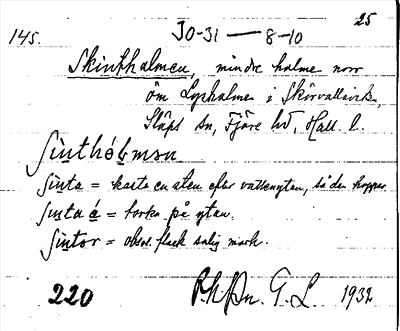 25
145. JO-31 — 8-10
Skintholmen, mindre holme norr
om Lyxholme i Skörvallavik,
Släps sn, Fjäre hd, Hall. l.
sinthólmən
sinta = kasta en sten efter vattenytan, så den hoppar.
sinta á = torka på ytan.
sintor = obev. fläck salig mark.
220 G. L. 1932